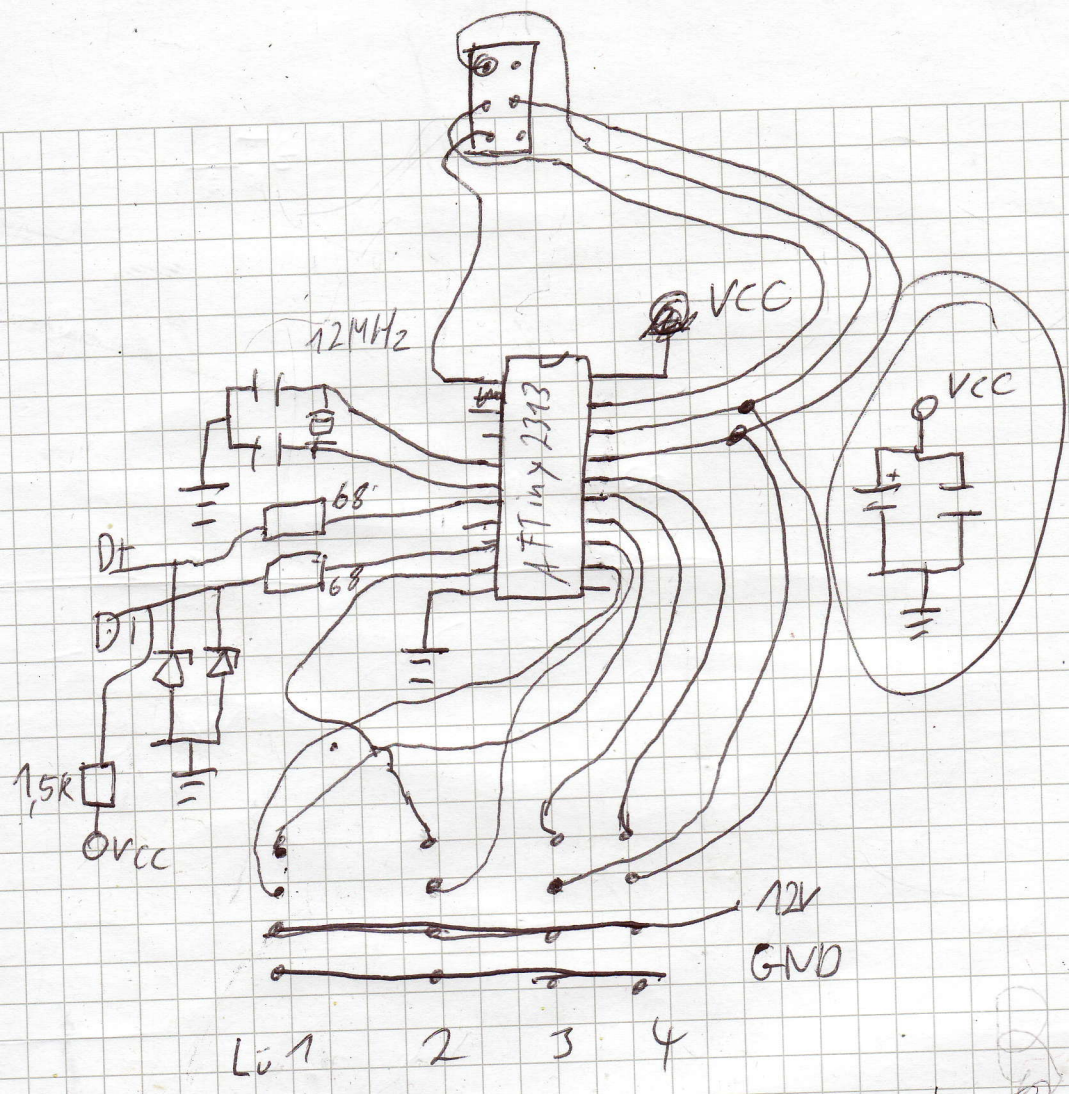 VCC
12MHz
VCC
ATTiny 2313
+
68
D+
68
D-
1,5k
VCC
12V
GND
Lü 1 2 3 4